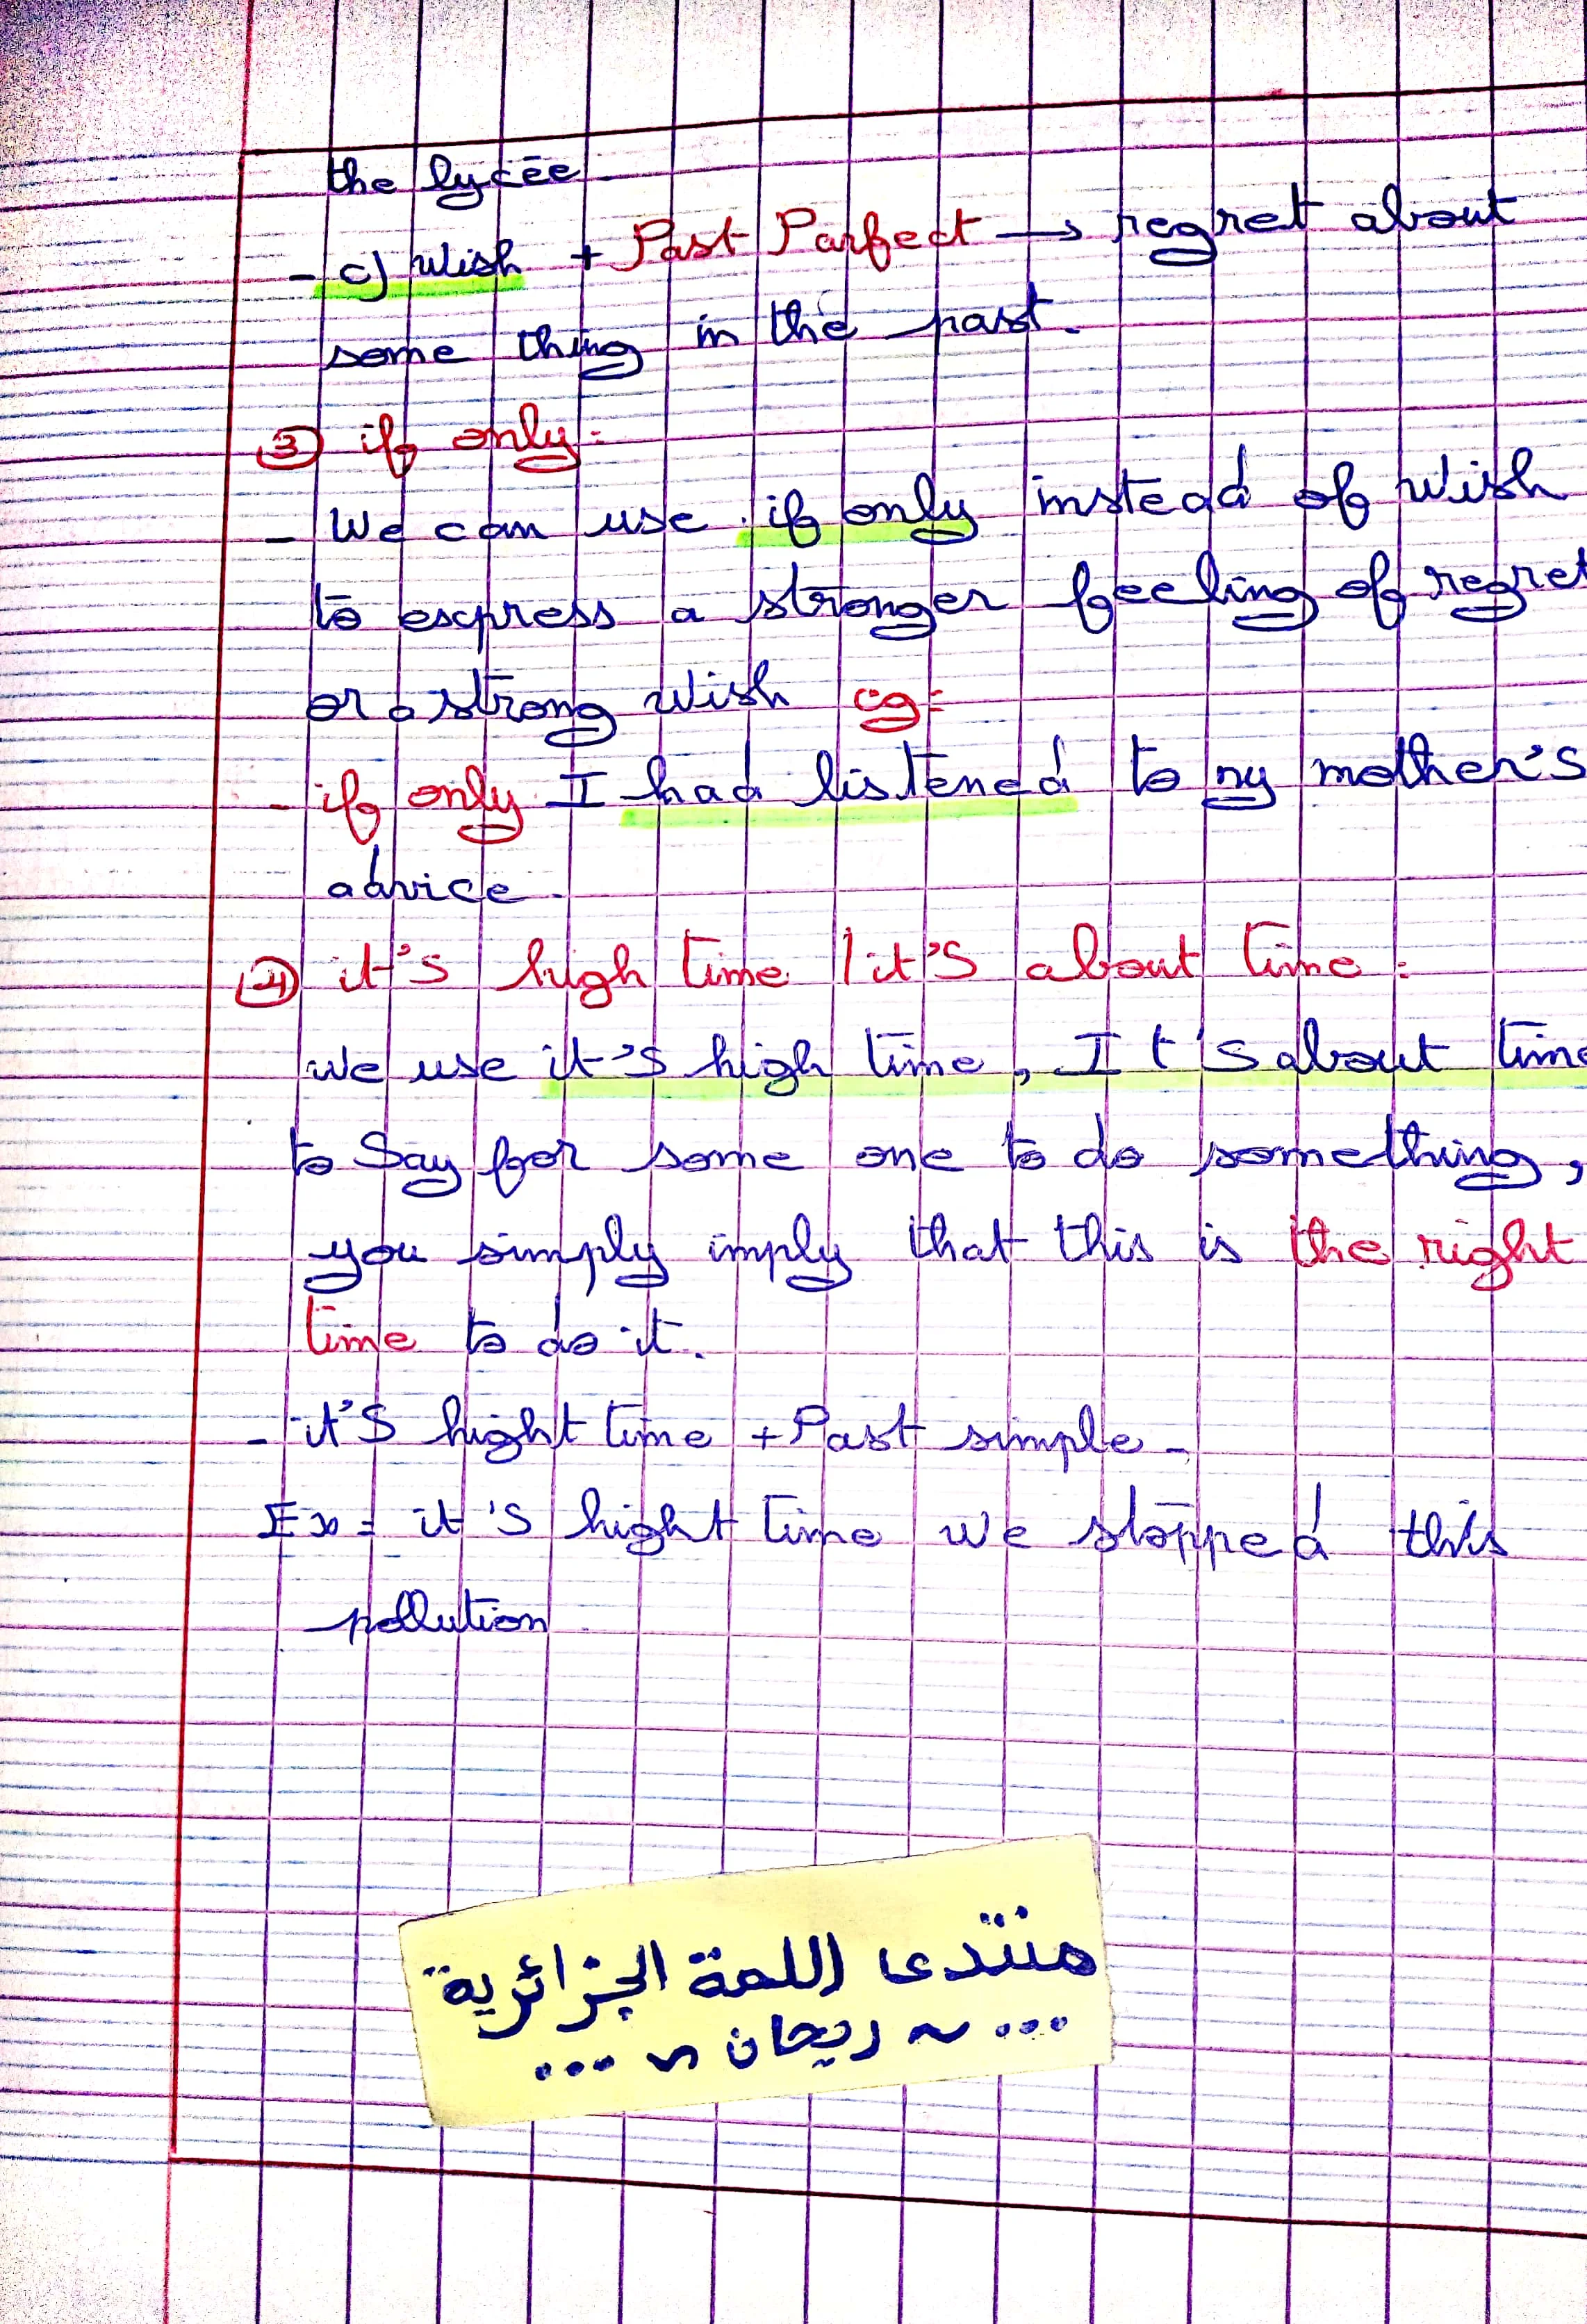 the lycée
- c) wish + Past Parfect → regret about
some thing in the past.
③ if only:
- We can use if only instead of wish
to express a stronger feeling of regret
or a strong wish eg:
- if only I had listened to my mother's
advice.
④ it's high time / it's about time:
we use it's high time, It's about time
to say for some one to do something,
you simply imply that this is the right
time to do it.
- it's hight time + Past simple -
Ex: it's hight time we stopped this
pollution
منتدى اللمة الجزائرية
... ~ ريحان ~ ...